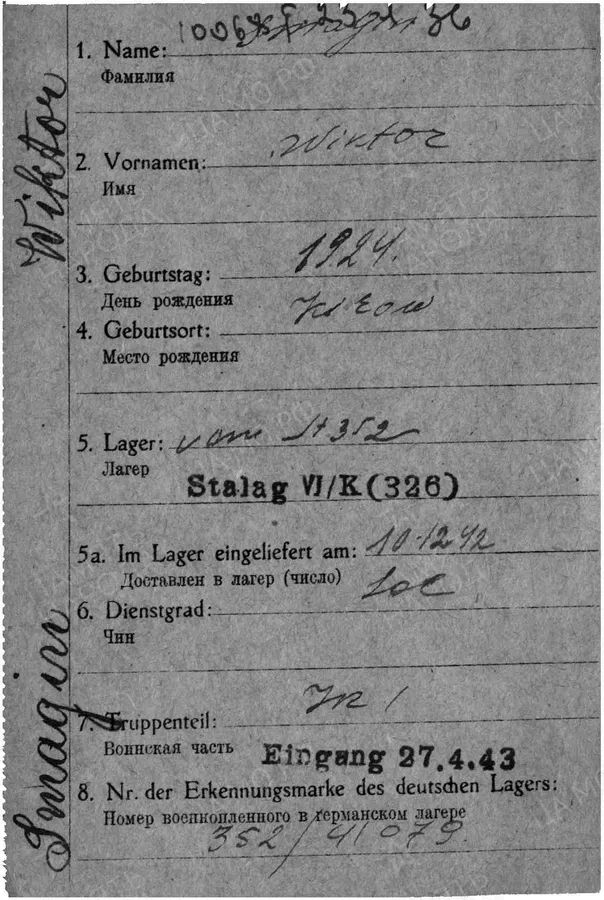 1. Name:
Фамилия
2. Vornamen: Wiktor
Имя
3. Geburtstag: 1924.
День рождения
4. Geburtsort:
Место рождения
5. Lager: vom St 352
Лагер
Stalag VI/K (326)
5a. Im Lager eingeliefert am: 10.12.42
Доставлен в лагер (число)
6. Dienstgrad: Sol
Чин
7. Truppenteil:
Воинская часть
Eingang 27.4.43
8. Nr. der Erkennungsmarke des deutschen Lagers:
Номер военнопленного в германском лагере
352/41079
Smagin Wiktor